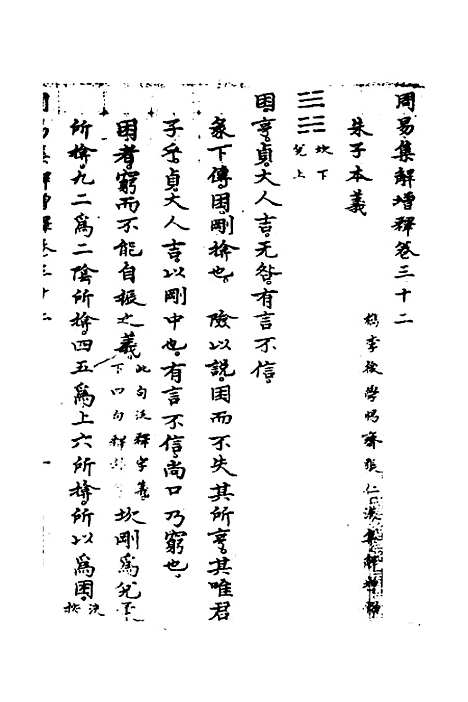 周易集解增釋卷三十二
檇李後學惕齋張仁浹集解增釋
朱子本義
坎下
兌上
困亨貞大人吉无咎有言不信
彖下傳困剛揜也 險以說困而不失其所亨其唯君
子乎貞大人吉以剛中也有言不信尚口乃窮也
困者窮而不能自振之義 此句汎釋字義 下四句釋 坎剛爲兌柔
所揜九二爲二陰所揜四五爲上六所揜所以爲困 浹按
周易集解增釋卷三十二 一